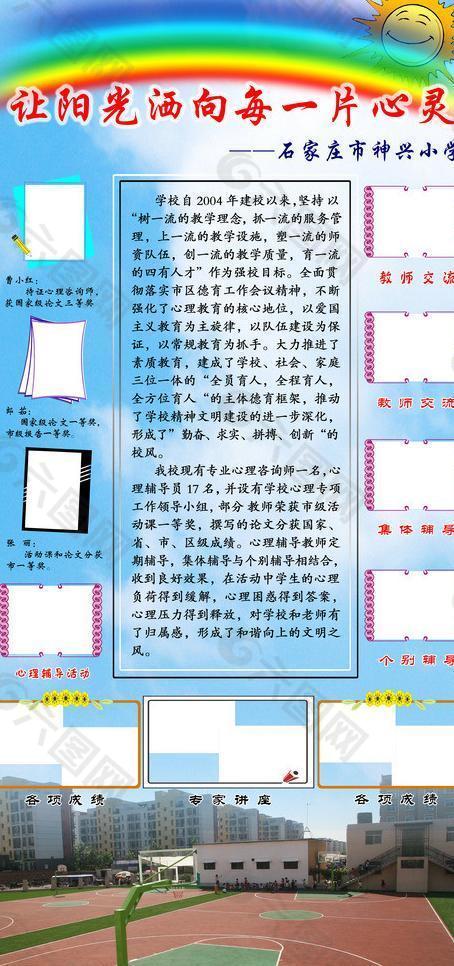 让阳光洒向每一片心灵
——石家庄市神兴小学
学校自2004年建校以来,坚持以
“树一流的教学理念,抓一流的服务管
理,上一流的教学设施,塑一流的师
资队伍,创一流的教学质量,育一流
的四有人才”作为强校目标。全面贯
彻落实市区德育工作会议精神,不断
强化了心理教育的核心地位,以爱国
主义教育为主旋律,以队伍建设为保
证,以常规教育为抓手。大力推进了
素质教育,建成了学校、社会、家庭
三位一体的“全员育人,全程育人,
全方位育人“的主体德育框架,推动
了学校精神文明建设的进一步深化,
形成了”勤奋、求实、拼搏、创新“的
校风。
我校现有专业心理咨询师一名,心
理辅导员17名,并设有学校心理专项
工作领导小组,部分教师荣获市级活
动课一等奖,撰写的论文分获国家、
省、市、区级成绩。心理辅导教师定
期辅导,集体辅导与个别辅导相结合,
收到良好效果,在活动中学生的心理
负荷得到缓解,心理困惑得到答案,
心理压力得到释放,对学校和老师有
了归属感,形成了和谐向上的文明之
风。
曹小红:
持证心理咨询师,
获国家级论文三等奖。
郎茹:
国家级论文一等奖,
市级报告一等奖。
张丽:
活动课和论文分获
市一等奖。
心理辅导活动
教师交流
教师交流
集体辅导
个别辅导
各项成绩
专家讲座
各项成绩